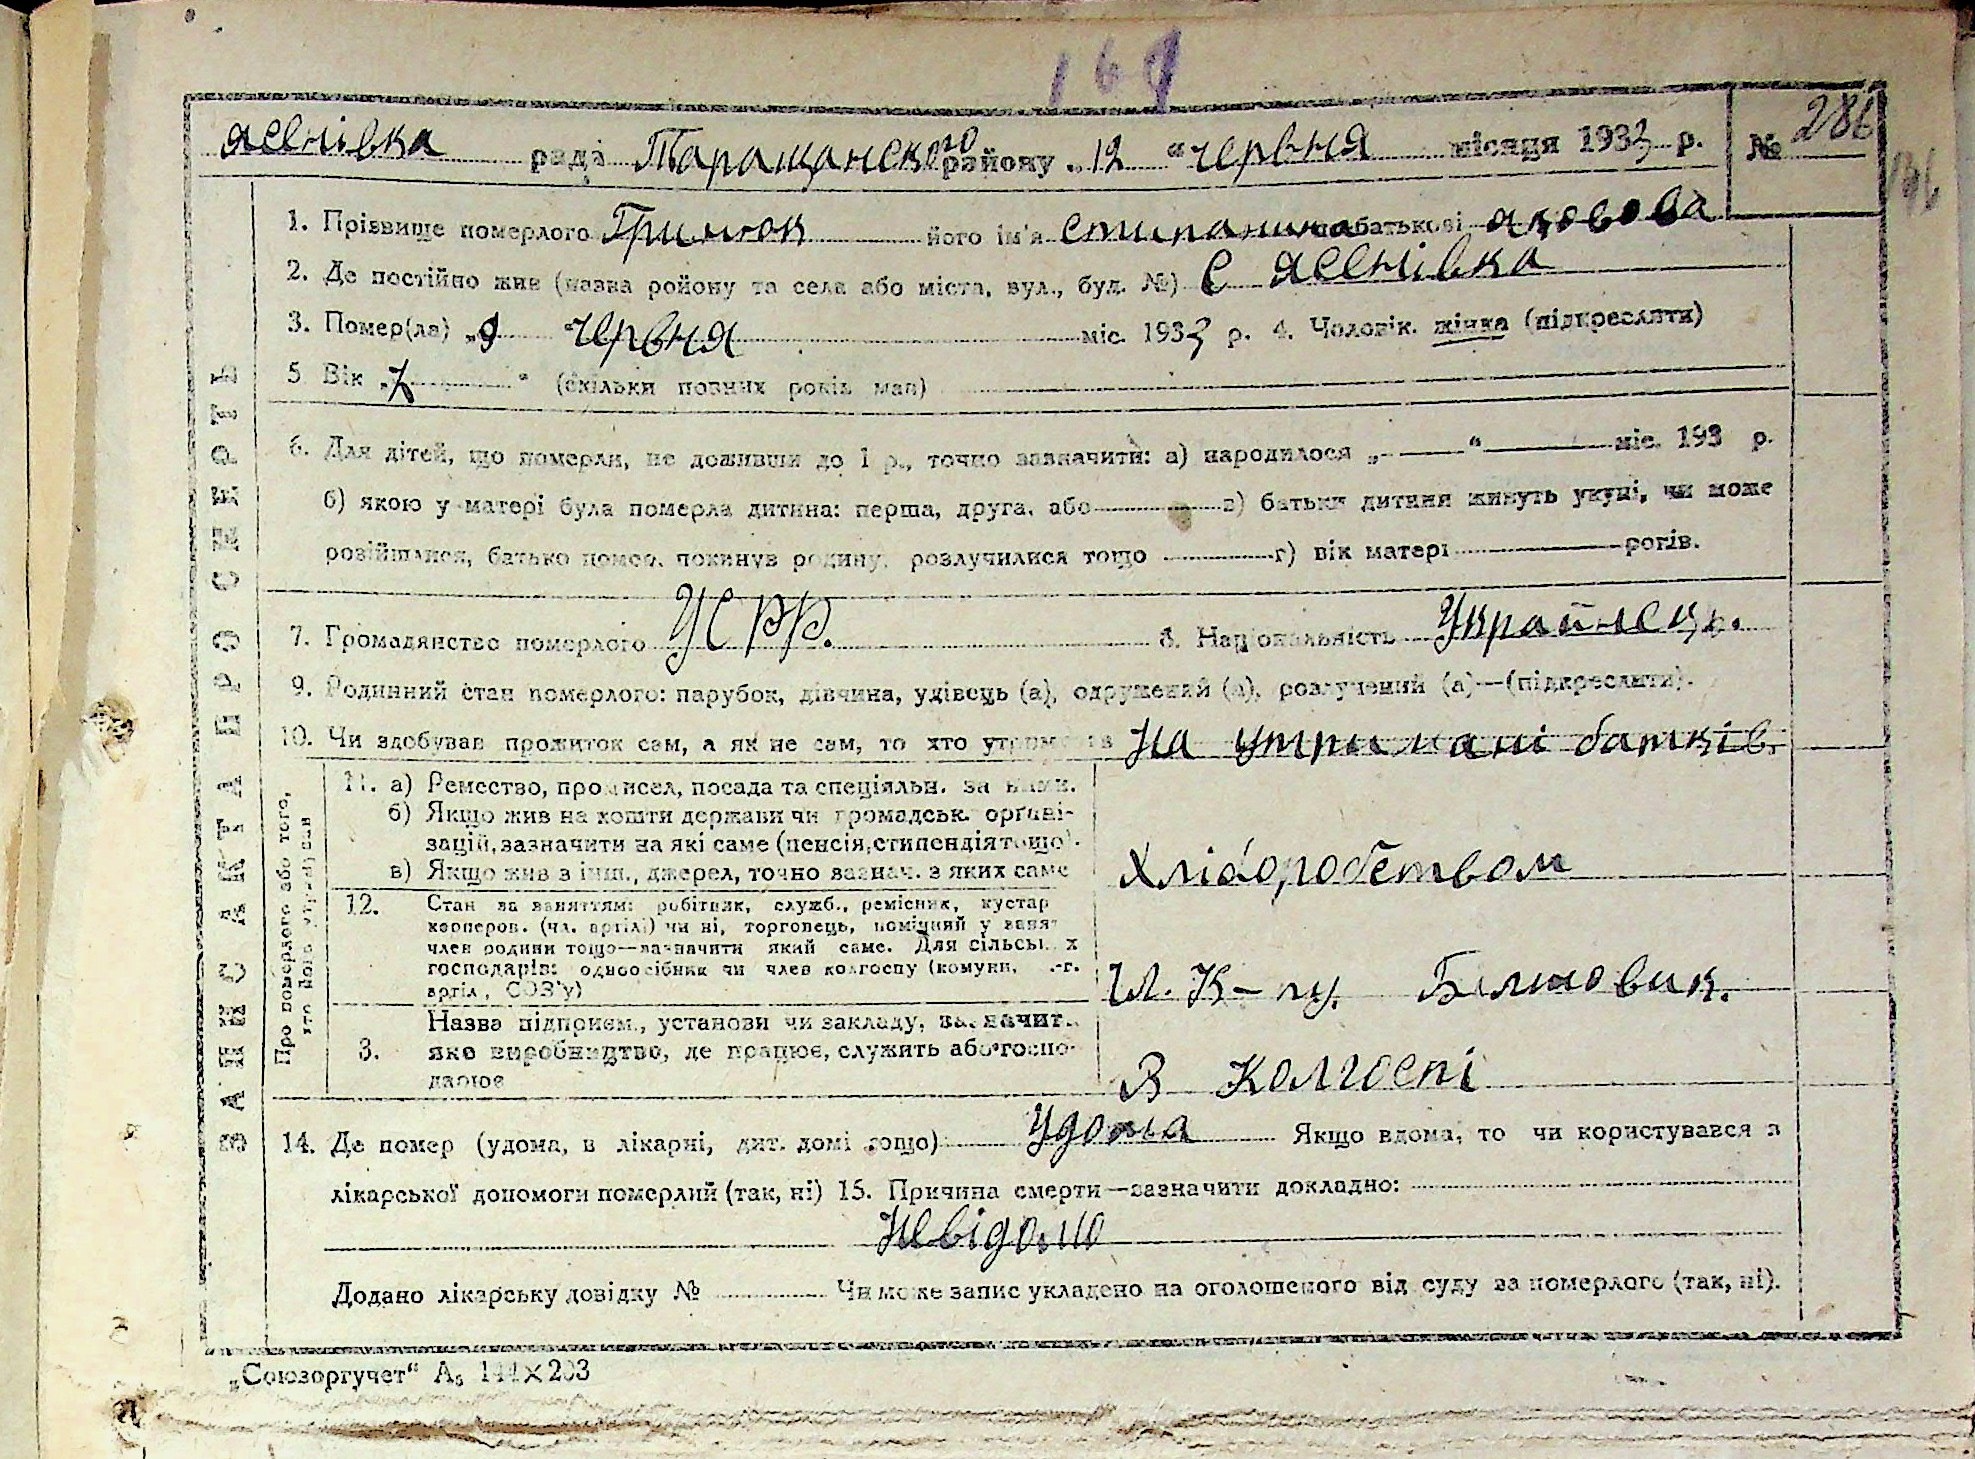 169
ясенівка рада Таращанского району „12 “ червня місяця 1933 р. № 286
1. Прізвище померлого Гринюк його ім'я степанина по батькові яковова
2. Де постійно жив (назва району та села або міста, вул., буд. №) С ясенівка
3. Помер(ла) „9 “ червня міс. 1933 р. 4. Чоловік. жінка (підкреслити)
5 Вік „7 “ (скільки повних років мав)
6. Для дітей, що померли, не доживши до 1 р., точно зазначити: а) народилося „ “ міс. 193 р.
б) якою у матері була померла дитина: перша, друга, або в) батьки дитини живуть укупі, чи може
розійшлися, батько помер, покинув родину, розлучилися тощо г) вік матері років.
7. Громадянство померлого УСРР. 8. Національність Українець.
9. Родинний стан померлого: парубок, дівчина, удівець (а), одружений (а), розлучений (а)—(підкреслити).
10. Чи здобував прожиток сам, а як не сам, то хто утримував На утримані батків.
ЗАПИС АКТА ПРО СМЕРТЬ
Про померлого або того, хто його утримував
11. а) Ремество, промисел, посада та спеціяльн. за ними.
б) Якщо жив на кошти держави чи громадськ. органі-
зацій, зазначити на які саме (пенсія, стипендія тощо).
в) Якщо жив з інш., джерел, точно зазнач. з яких саме
Хліборобством
12. Стан за заняттям: робітник, служб., ремісник, кустар
кооперов. (чл. артілі) чи ні, торговець, помічний у занят
член родини тощо—зазначити який саме. Для сільськ х
господарів: одноосібник чи член колгоспу (комуни, с.-г.
артіл, СОЗ'у)
Чл. К–пу. Білшовик.
Назва підприєм., установи чи закладу, зазначит..
3. яке виробництво, де працює, служить або госпо-
дарює
В Колгоспі
14. Де помер (удома, в лікарні, дит. домі тощо) Удома Якщо вдома, то чи користувався з
лікарської допомоги померлий (так, ні) 15. Причина смерти—зазначити докладно:
Невідомо
Додано лікарську довідку № Чи може запис укладено на оголошеного від суду за померлого (так, ні).
„Союзоргучет“ А₅ 144×203